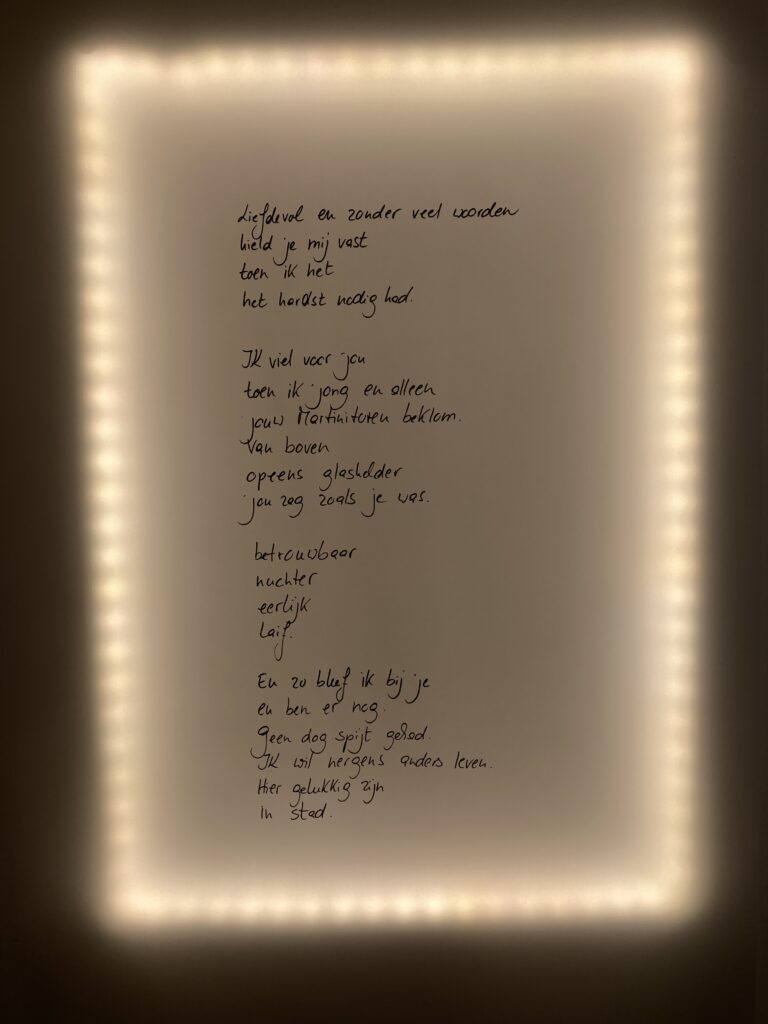 Liefdevol en zonder veel woorden
hield je mij vast
toen ik het
het hardst nodig had.
Ik viel voor jou
toen ik jong en alleen
jouw Martinitoren beklom.
Van boven
opeens glashelder
jou zag zoals je was.
betrouwbaar
nuchter
eerlijk
laif.
En zo bleef ik bij je
en ben er nog.
Geen dag spijt gehad.
Ik wil nergens anders leven.
Hier gelukkig zijn
in stad.